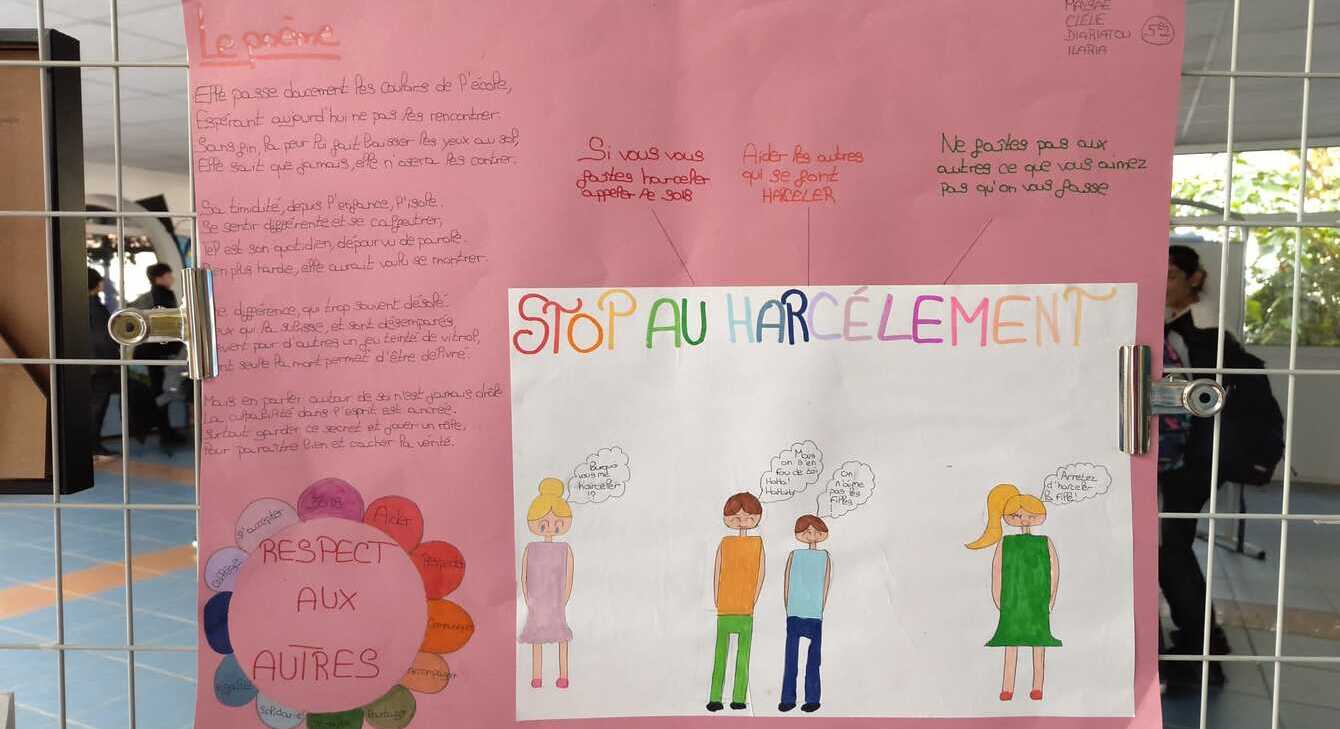 Le poème
Elle passe doucement les couloirs de l'école,
Espérant aujourd'hui ne pas les rencontrer.
Sans fin, la peur lui fait baisser les yeux au sol,
Elle sait que jamais, elle n'osera les contrer.
Sa timidité, depuis l'enfance, l'isole.
Se sentir différente et se calfeutrer,
Tel est son quotidien, dépourvu de parole.
en plus hardie, elle aurait voulu se montrer.
différence, qui trop souvent désole.
ux qui la subisse, et sont désemparés,
vent pour d'autres un jeu teinté de vitriol,
nt seule la mort permet d'être délivré.
Mais en parler autour de soi n'est jamais drôle
La culpabilité dans l'esprit est ancrée.
Surtout garder ce secret et jouer un rôle,
Pour paraître bien et cacher la vérité.
MAISAE
CLÉLIE
DIARIATOU
ILARIA
Si vous vous
faites harceler
appeler le 3018
Aider les autres
qui se font
HARCELER
Ne faites pas aux
autres ce que vous aimez
pas qu'on vous fasse
STOP AU HARCÉLEMENT
Mais
on s'en
fou de toi
HaHa!
On
n'aime
pas les
filles
!
Arretez
d'harceler
la fille!
vous me
harceler
!?
RESPECT
AUX
AUTRES
s'accepter
Aider
Respecter
Communiquer
Accompagner
Partager
Solidarité